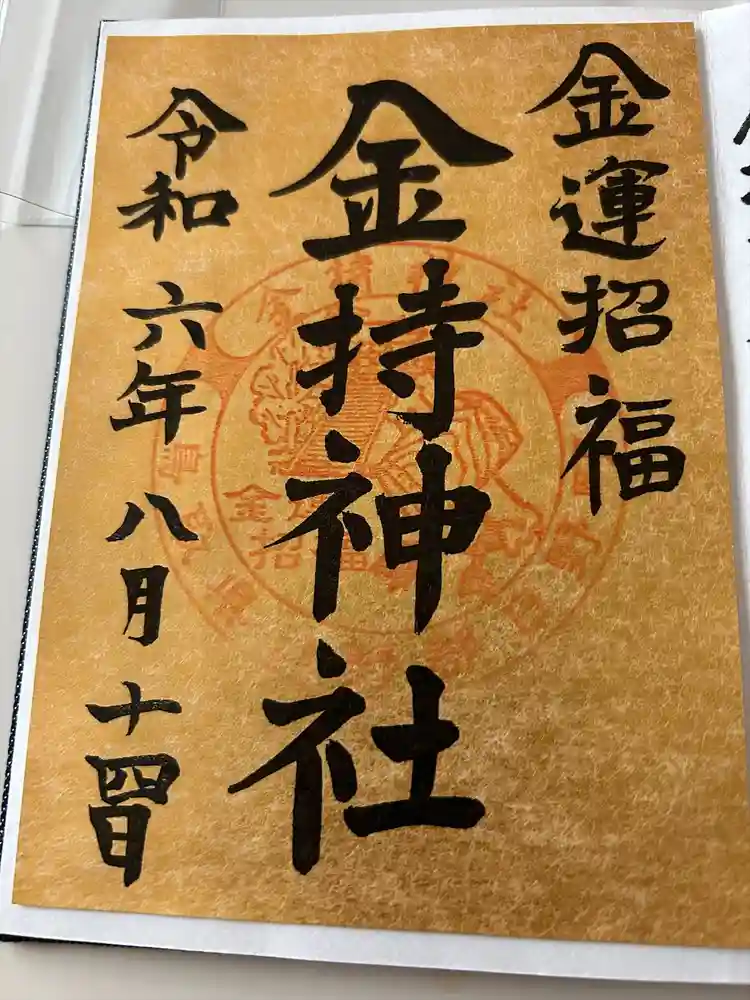 金運招福
金持神社
令和六年八月十四日
金持神社